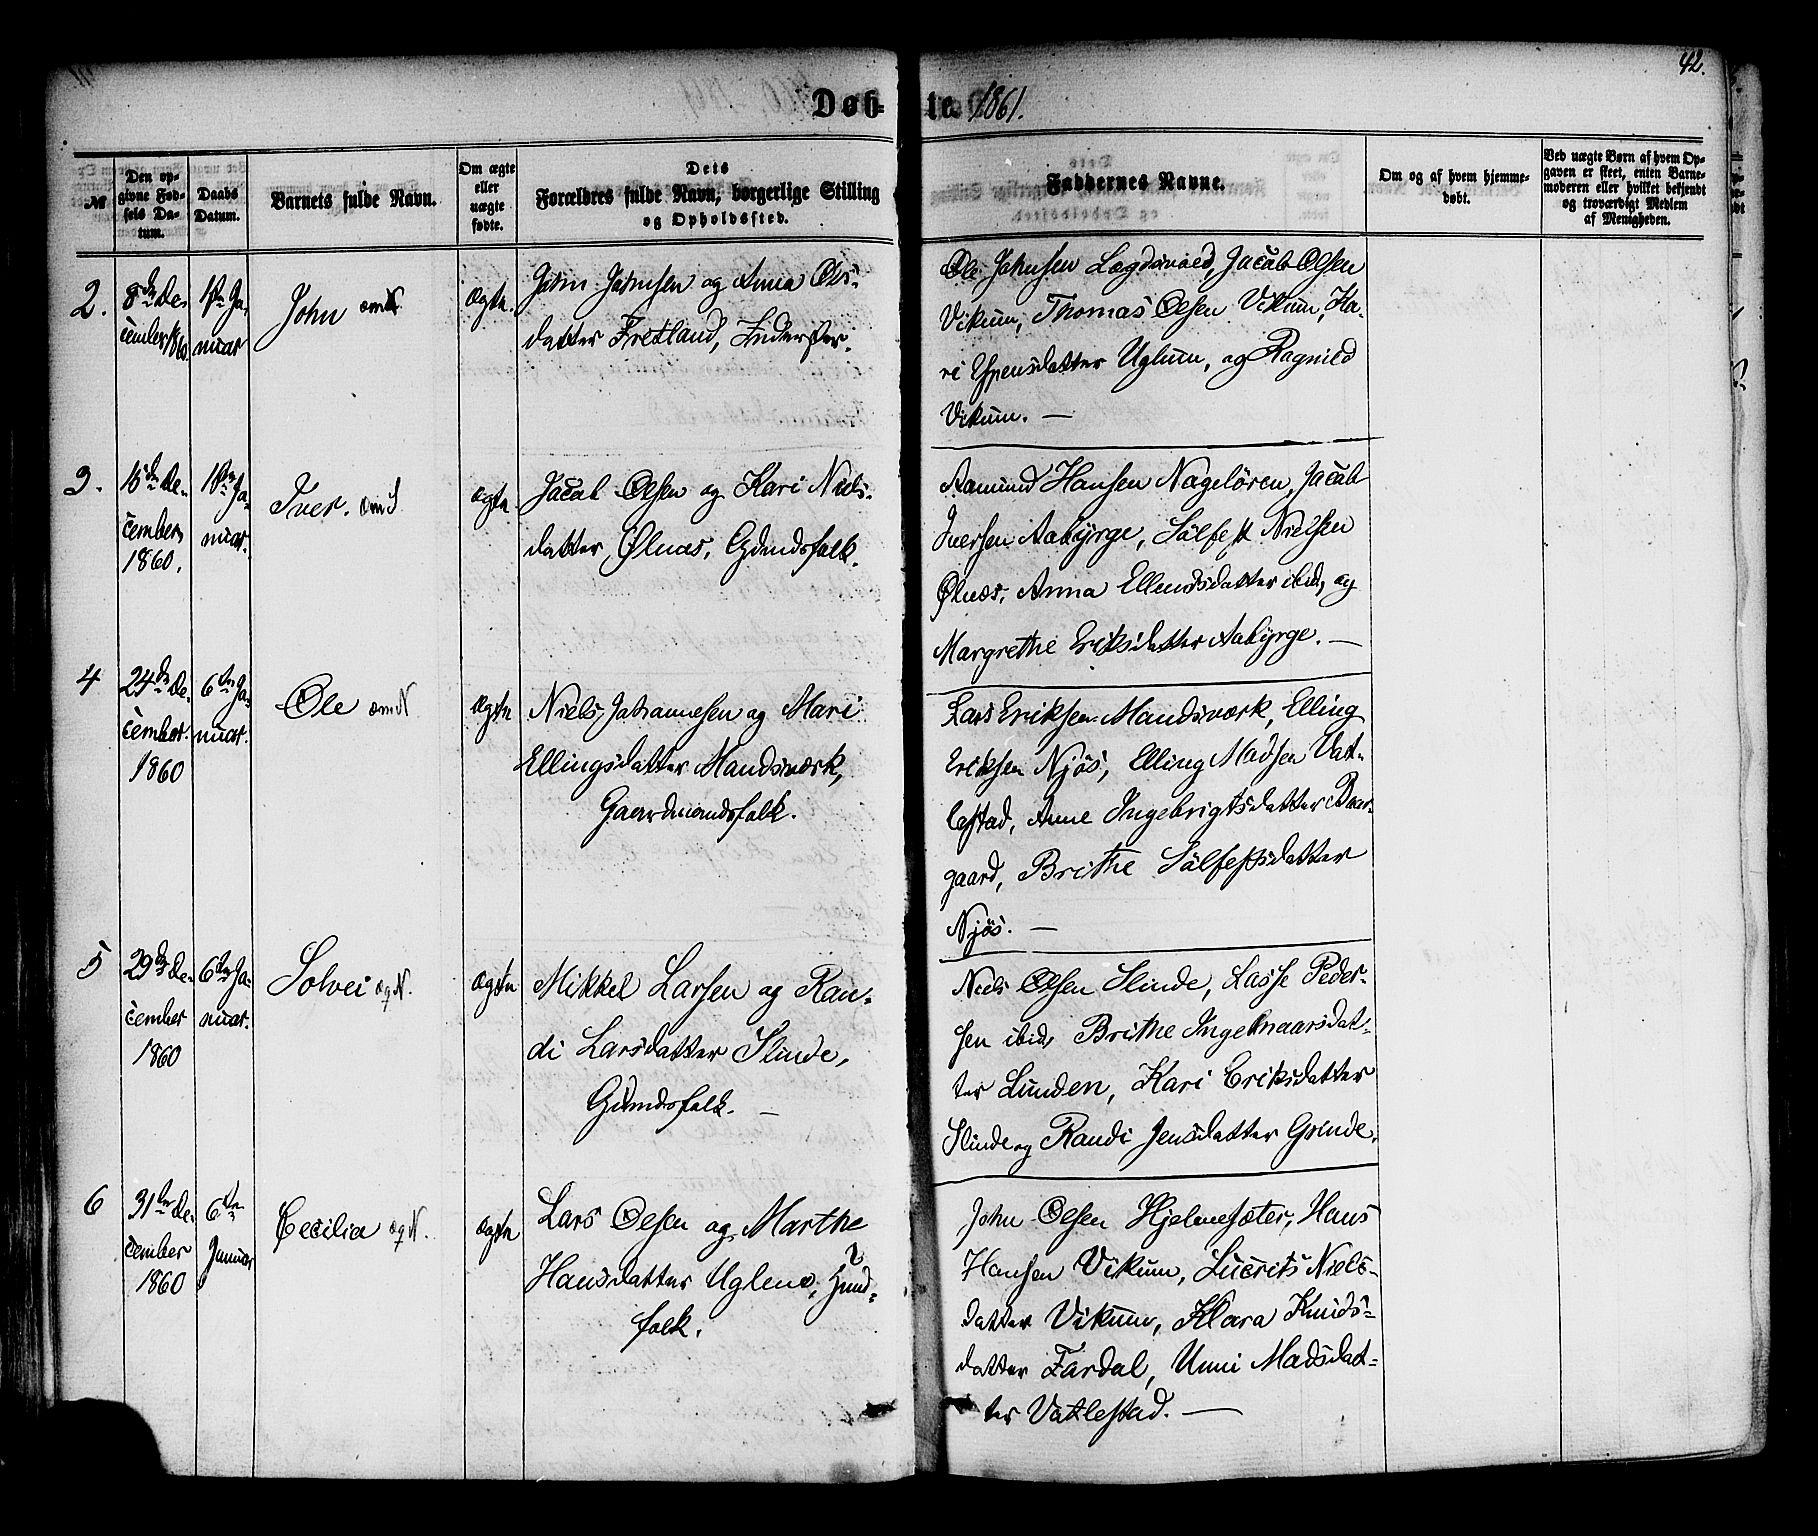 42.
Døb-
te. 1861.
№
Den op-
givne Fød-
sels Da-
tum.
Daabs
Datum.
Barnets fulde Navn.
Om ægte
eller
uægte
fødte.
Dets
Forældres fulde Navn, borgerlige Stilling
og Opholdssted.
Faddernes Navne.
Om og af hvem hjemme-
døbt.
Ved uægte Børn af hvem Op-
gaven er skeet, enten Barne-
moderen eller hvilket bekjendt
og troværdigt Medlem
af Menigheden.
2.
8de De-
cember 1860
1ste Ja-
nuar
John
ægte.
John Johnsen og Anna Ols-
datter Fretland, Inderster.
Ole Johnsen Lægdsvold, Jacob Olsen
Vikum, Thomas Olsen Vikum, Ka-
ri Espensdatter Uglum, og Ragnild
Vikum. —
3.
15de De-
cember
1860.
1ste Ja-
nuar.
Iver.
ægte.
Jacob Olsen og Kari Niels-
datter Ølnæs, Gdmdsfolk.
Aamund Hansen Nagelören, Jacob
Iversen Aabyrge, Sölfest Nielsen
Ølnæs, Anna Ellendsdatter ibid, og
Margrethe Eriksdatter Aabyrge. —
4
24de De-
cember.
1860
6te Ja-
nuar.
Ole
ægte
Niels Johannesen og Mari
Ellingsdatter Mandsværk,
Gaardmandsfolk.
Lars Eriksen Mandsværk, Elling
Eriksen Njös, Elling Madsen Vat-
lestad, Anne Ingebrigtsdatter Baar-
gaard, Brithe Sölfestsdatter
Njös. —
5
29de De-
cember
1860
6te Ja-
nuar.
Solvei
ægte
Mikkel Larsen og Ran-
di Larsdatter Slinde,
Gdmdsfolk. —
Niels Olsen Slinde, Lasse Peder-
sen ibid, Brithe Ingebnaarsdat-
ter Lunden, Kari Eriksdatter
Slinde og Randi Jensdatter Grinde.
6
31te De-
cember
1860
6te
Januar
Cecilia
ægte
Lars Olsen og Marthe
Hansdatter Uglene,
folk.
John Olsen Hjelmesæter, Hans
Hansen Vikum, Lucrits Niels-
datter Vikum, Klara Knuds-
datter Fardal, Unni Madsdat-
ter Vatlestad. —